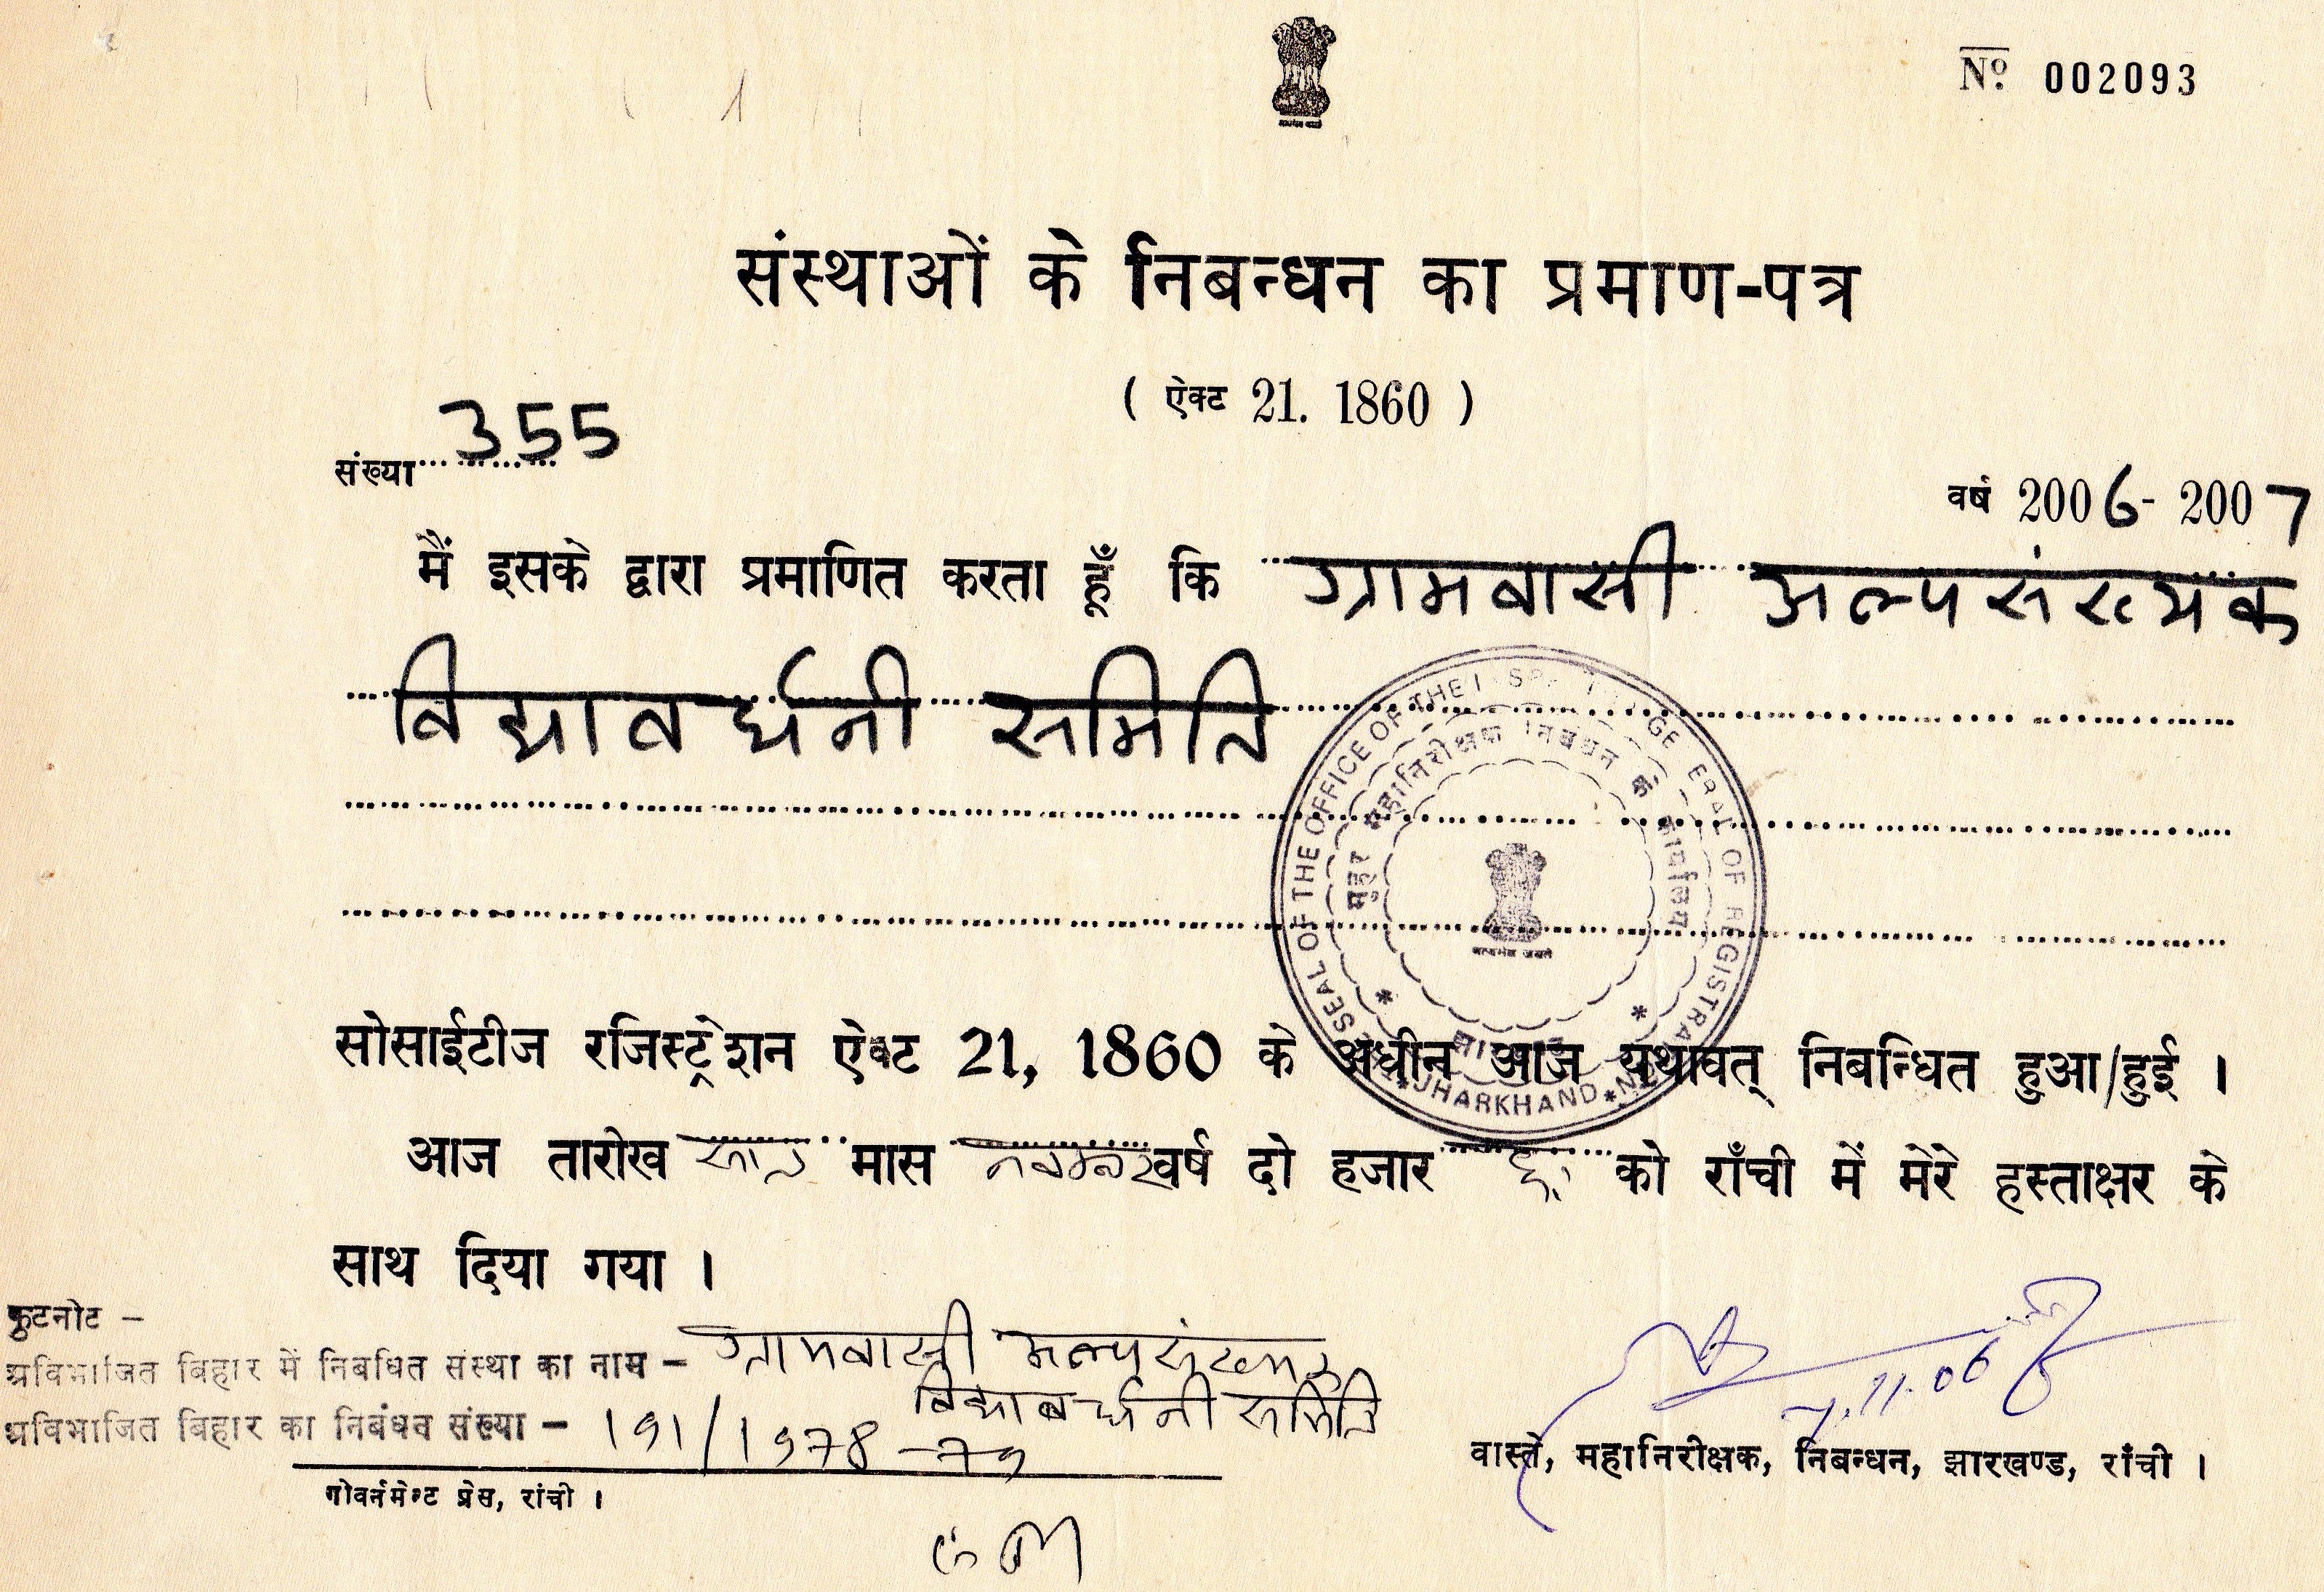 № 002093
संस्थाओं के निबन्धन का प्रमाण-पत्र
( ऐक्ट 21. 1860 )
संख्या 355
वर्ष 2006-2007
मैं इसके द्वारा प्रमाणित करता हूँ कि ग्रामवासी अल्पसंख्यक
विद्यावर्धनी समिति
SEAL OF THE OFFICE OF THE GENERAL OF REGISTRATION JHARKHAND
मुहर महानिरीक्षक निबंधन के कार्यालय
सत्यमेव जयते
सोसाईटीज रजिस्ट्रेशन ऐक्ट 21, 1860 के अधीन आज यथावत् निबन्धित हुआ/हुई ।
आज तारीख सात मास नवम्बर वर्ष दो हजार छः को राँची में मेरे हस्ताक्षर के
साथ दिया गया ।
फुटनोट -
अविभाजित बिहार में निबंधित संस्था का नाम - ग्रामवासी अल्पसंख्यक
विद्यावर्धनी समिति
अविभाजित बिहार का निबंधन संख्या - 191/1978-79
7.11.06
वास्ते, महानिरीक्षक, निबन्धन, झारखण्ड, राँची ।
गोवर्नमेन्ट प्रेस, रांची ।